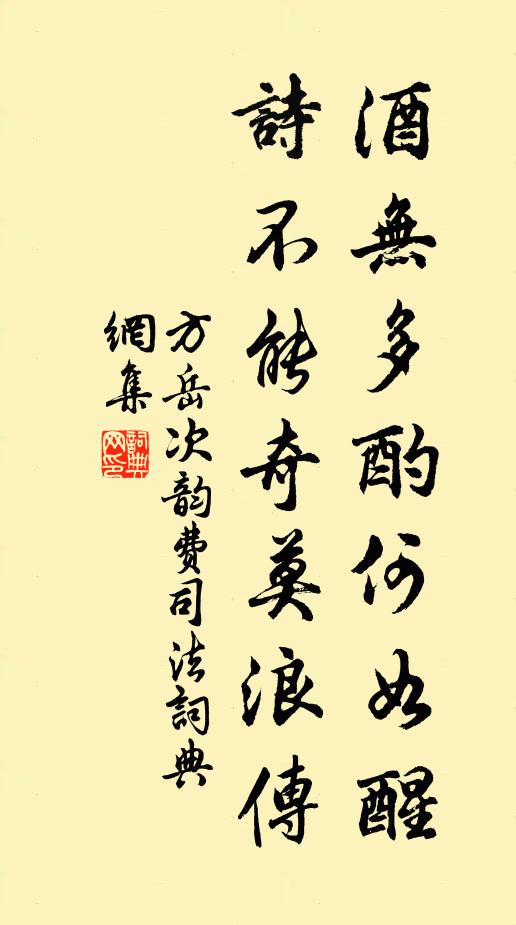 酒無多酌何如醒
詩不能奇莫浪傳
方岳次韵費司法詞典
網集
詞典網印